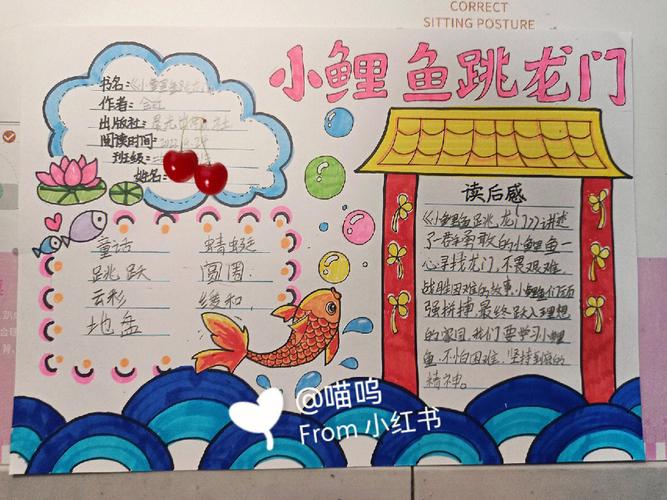 CORRECT
SITTING POSTURE
小鲤鱼跳龙门
书名:《小鲤鱼跳龙
作者:金近
出版社:
阅读时间:
班级:
姓名:
童话 蜻蜓
跳跃 圆周
云彩 缓和
地盘
读后感
《小鲤鱼跳龙门》讲述
了一群勇敢的小鲤鱼一
心寻找龙门,不畏艰难,
战胜困难的故事,小鲤鱼们
强拼搏最终跃入理想
的家园,我们要学习小鲤
鱼,不怕困难,坚持到底的
精神。
@喵呜
From 小红书